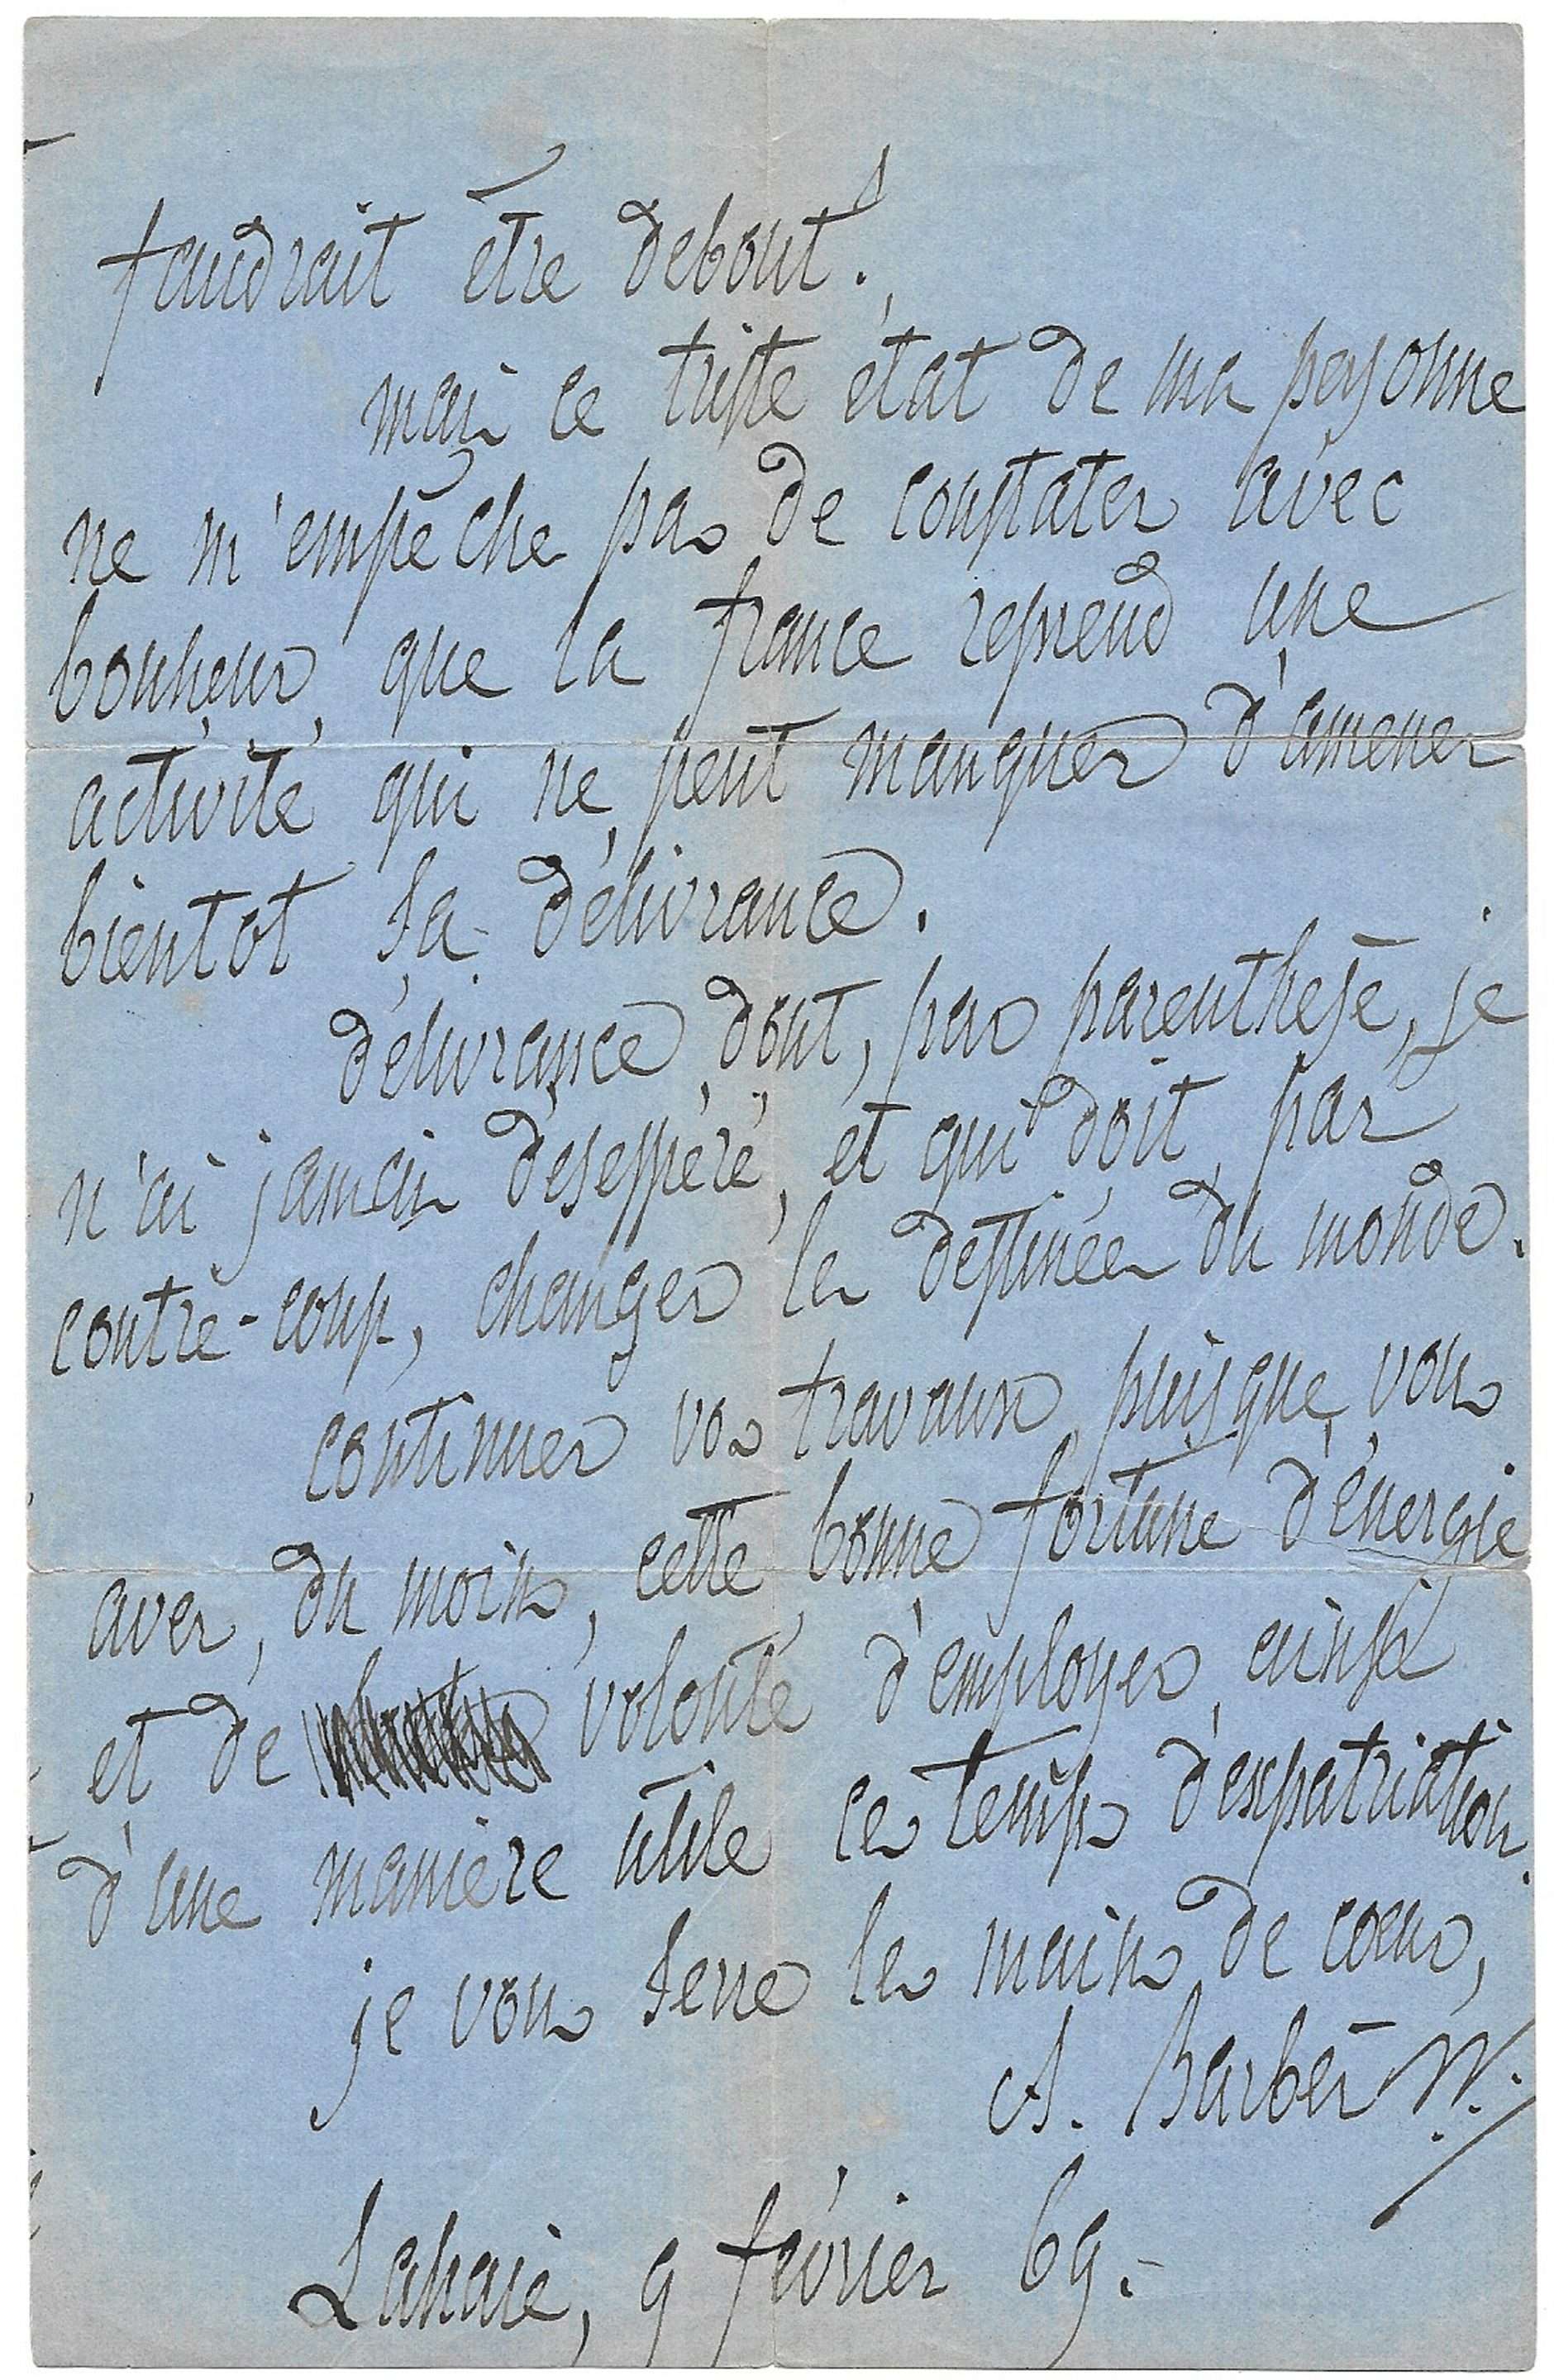 faudrait être debout !
mais ce triste état de ma personne
ne m'empêche pas de constater avec
bonheur que la france reprend une
activité qui ne peut manquer d'amener
bientot sa délivrance.
délivrance dont, par parenthese, je
n'ai jamais désespéré, et qui doit, par
contre-coup, changer les destinées du monde.
continuez vos travaux puisque vous
avez, du moins, cette bonne fortune d'énergie
et de volonté d'employer ainsi
d'une manière utile ces temps d'expatriation.
je vous serre les mains de cœur,
A. Barbès
Lahaie, 9 février 69.-